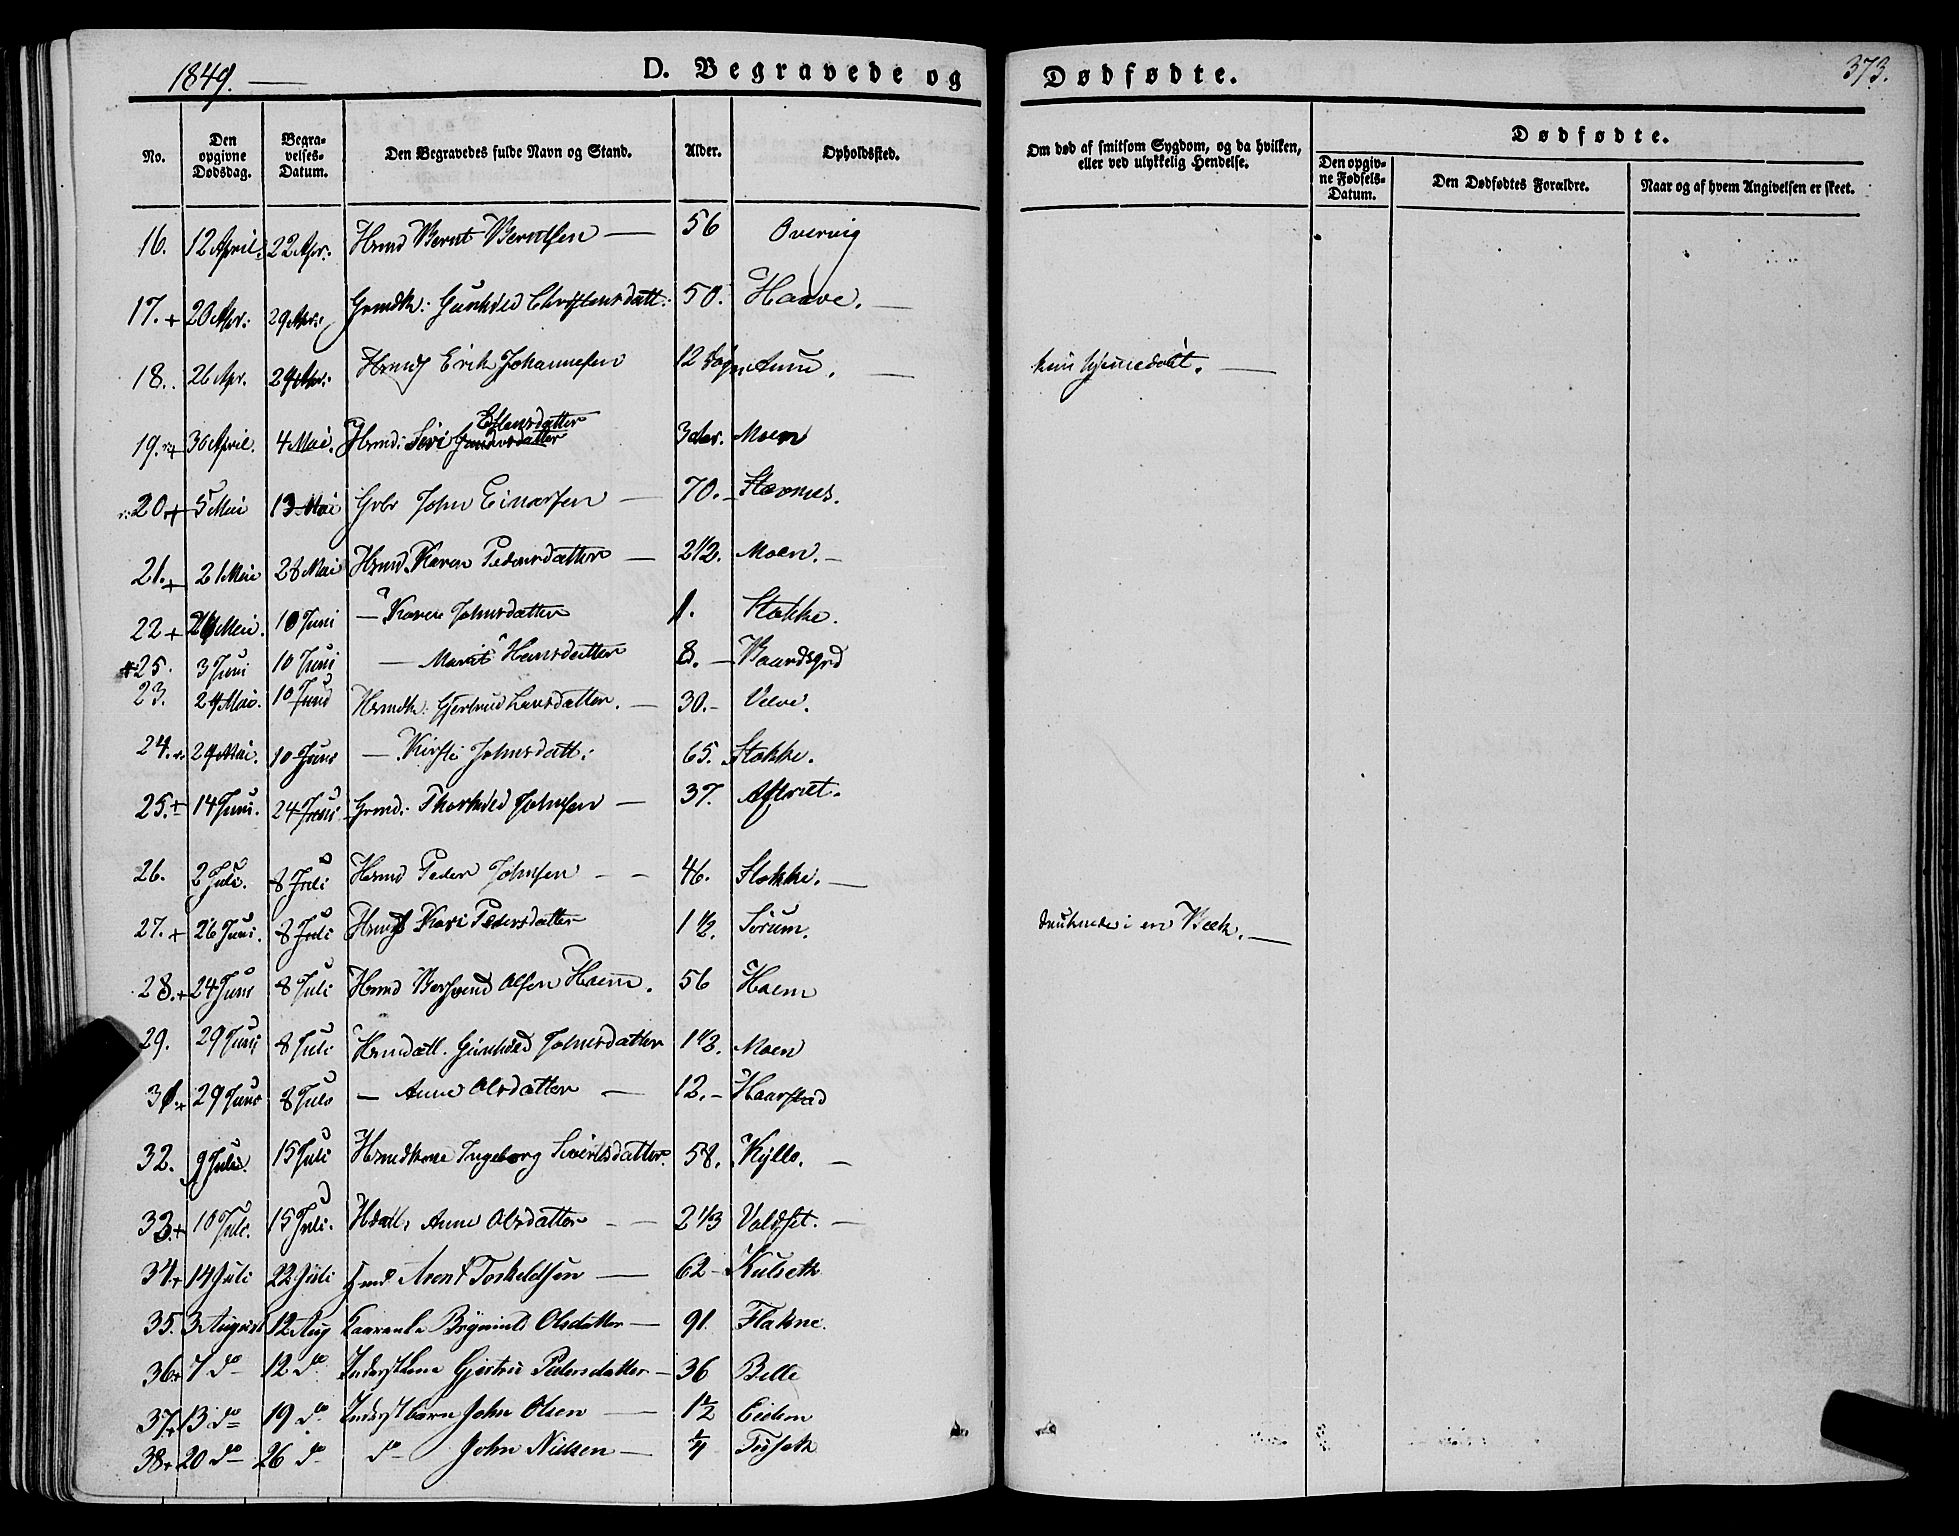 1849. —
D. Begravede og Dødfødte.
373.
No. | Den opgivne Dødsdag. | Begravelses-Datum. | Den Begravedes fulde Navn og Stand. | Alder. | Opholdssted. | Om død af smitsom Sygdom, og da hvilken, eller ved ulykkelig Hendelse. | Dødfødte. | Den opgivne Fødsels-Datum. | Den Dødfødtes Forældre. | Naar og af hvem Angivelsen er skeet.
16. 12 April. 22 Apr: Hmd Bernt Berntsen — 56 Overvig
17. + 20 Apr: 29 Apr: Grmdk: Gunhild Christensdatt: 50. Haave. —
18. 26 Apr. 29 Apr: Erik Johannesen 12 Dage Aune. — hjemmedøbt. —
19. + 30 April. 4 Mai. Hsmd: Siri Estensdatter 3 Aar. Moen
20 + 5 Mai 13 Mai Gbr John Einarsen — 70. — Stavnes.
21. + 21 Mai 28 Mai Hsmd. Karen Pedersdatter — 2 1/2. Moen. —
22 + 26 Mai. 10 Juni — Karen Johnsdatter 1. Stokke.
25. 3 Juni 10 Juni — Marit Hansdatter 8. — Baardsgrd
23. 24 Mai. 10 Juni Hsmdk: Gjertrud Larsdatter. — 30. — Velve.
24. 29 Mai. 10 Juni — Kirsti Johnsdatt: 65. Stokke.
25. + 14 Juni. 24 Juni Grmd: Thorkild Johnsen — 37. Aftret.
26. 2 Juli. 8 Juli Hsmd Peder Johnsen — 46. Stokke. —
27. + 26 Juni. 8 Juli Kari Pedersdatter 1 1/2. Sørum. druknede i en Bæk. —
28. + 24 Juni 8 Juli Hsmd Olsen Haem. 56 Haem
29. 29 Juni 8 Juli Hsmdatt. Gunhild Johnsdatter 1 1/3. Moen
31. + 29 Juni 8 Juli — Anne Olsdatter — 12. — Haarstad
32. 9 Juli. 15 Juli Hsmdkone Ingeborg Sivertsdatter. 58. Kyllo. —
33. + 10 Juli. 15 Juli. Anne Olsdatter — 2 1/3 Valdset. —
34. + 14 Juli 22 Juli Arent Torkeldsen — 62 — Kulseth
35. 3 August 12 Aug Brynild Olsdatter — 91. Flakne.
36. + 7 do 12. do Inderstkone Gjertru Pedersdatter — 36 Belle
37. + 13 do 19 do. Inderstbarn John Olsen — 1 1/2 Eidem
38. + 20 do 26 do do John Nielsen — 1/4 Tuseth